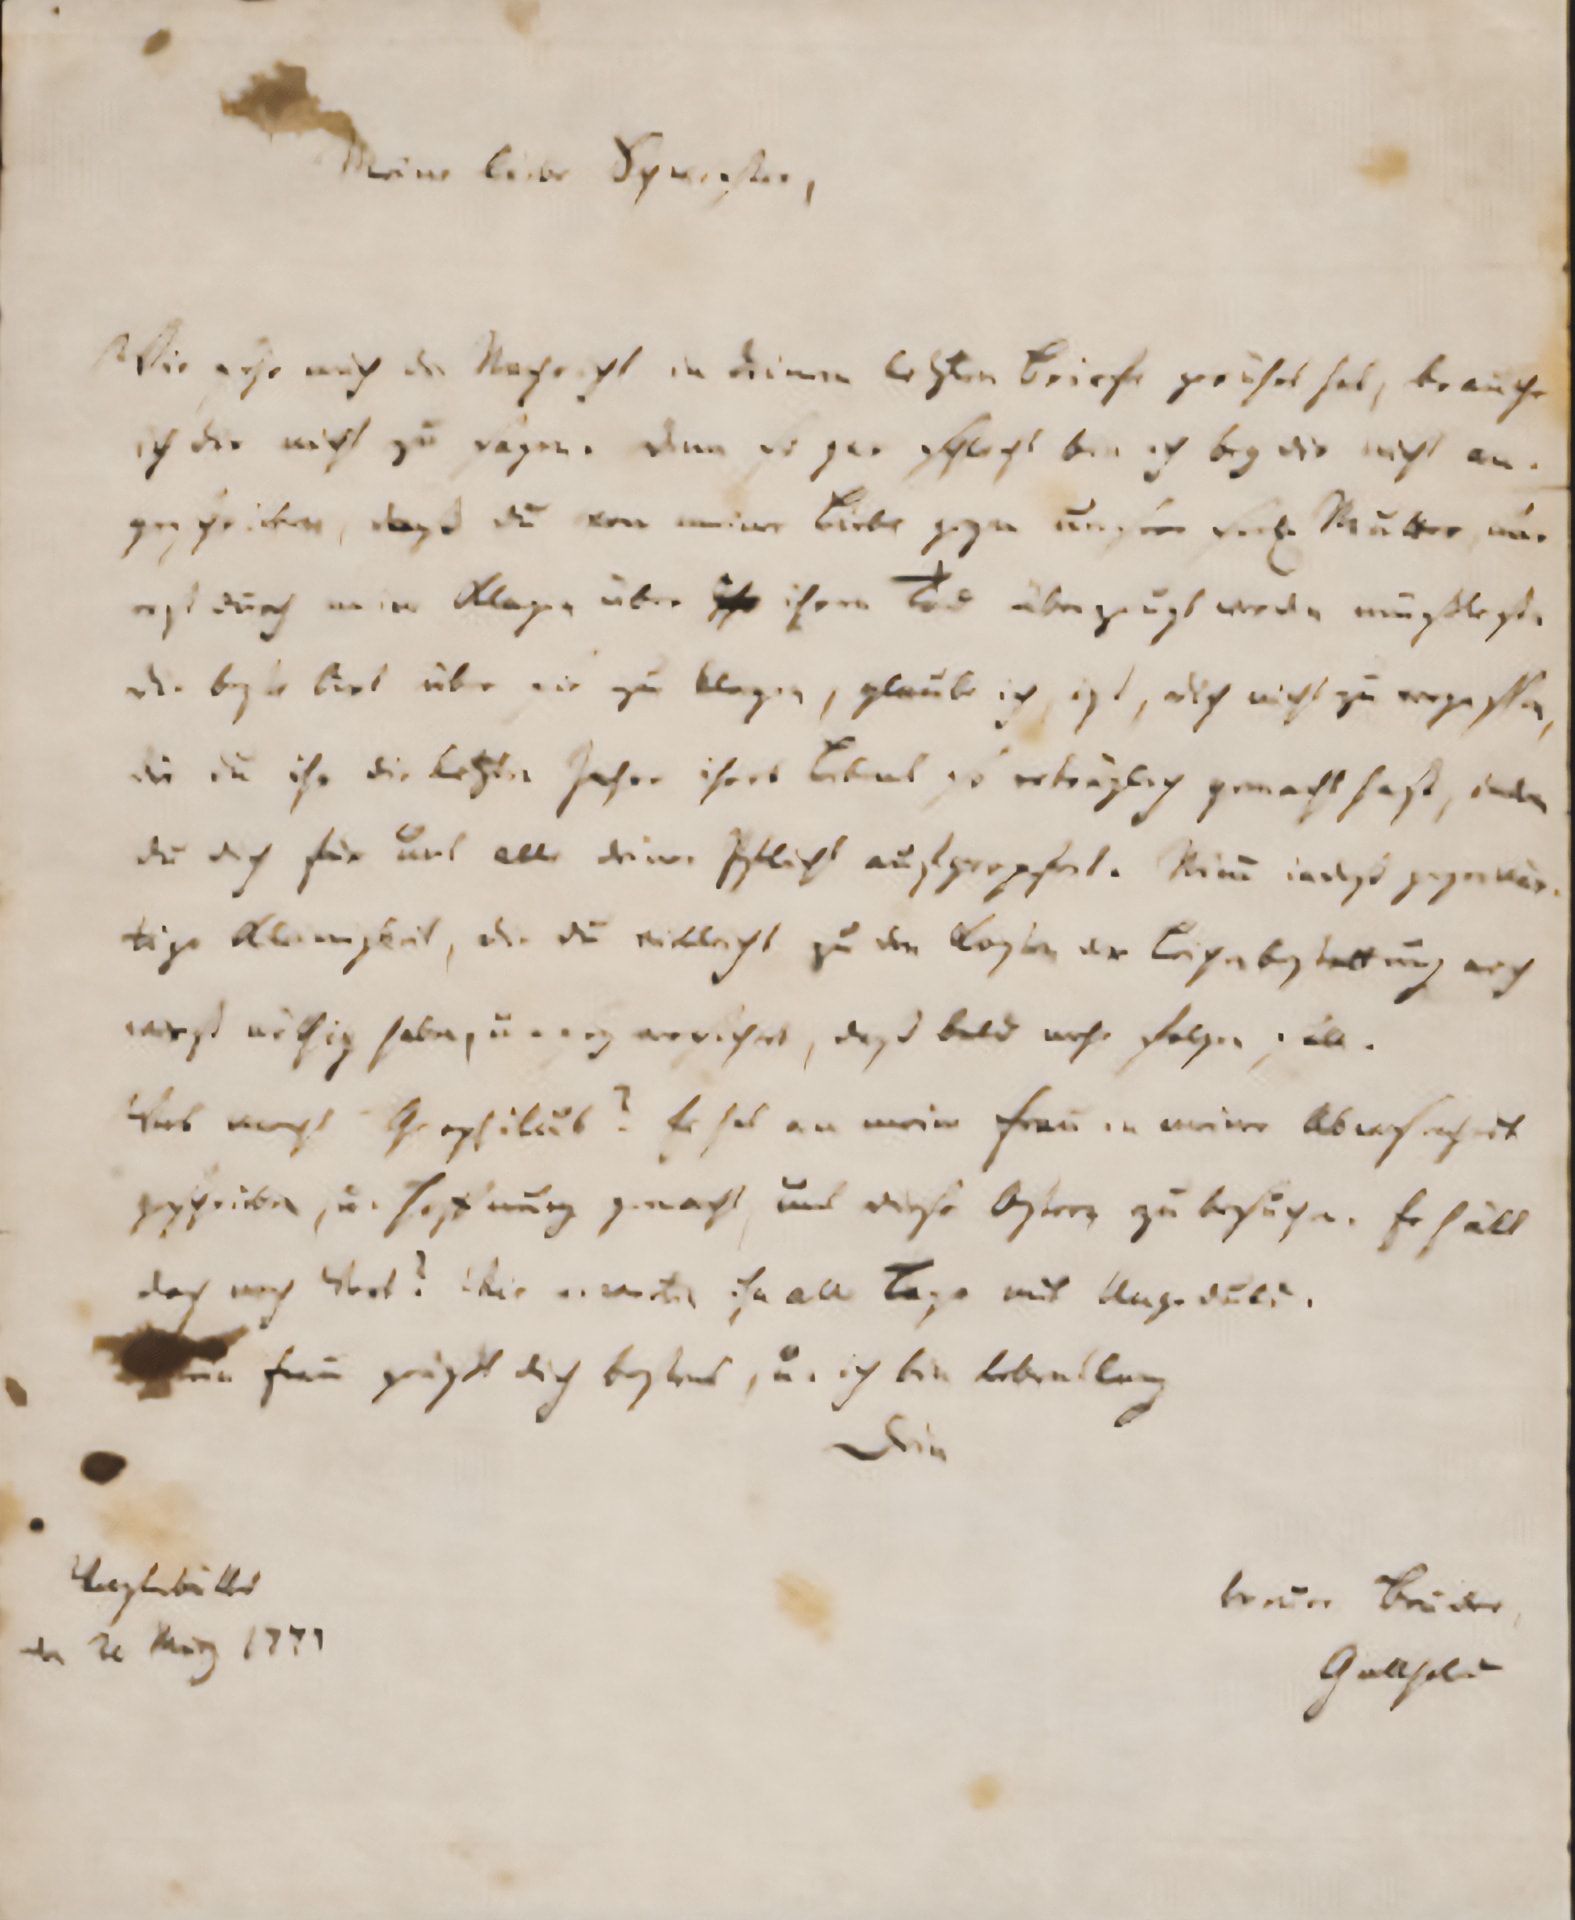 Meine liebe Schwester,
Wie sehr mich die Nachricht in deinem letzten Briefe gerührt hat, brauche
ich dir nicht zu sagen. Denn so gar schlecht bin ich bey dir nicht an-
geschrieben, dass du von meiner Liebe gegen unsere seel. Mutter, nur
erst durch meine Klagen über ihren Tod überzeugt werden müsstest.
Die beste Art über sie zu klagen, glaube ich, ist, dich nicht zu vergessen,
die du ihr die letzten Jahre ihres Lebens so erträglich gemacht hast, indem
du dich für uns alle deiner Pflicht aufgeopfert. Nimm indess gegenwär-
tige Kleinigkeit, die du vielleicht zu den Kosten der Leichenbestattung noch
wirst nöthig haben, u. sey versichert, dass bald mehr folgen soll.
Was macht Theophilus? Er hat an meine Frau in meiner Abwesenheit
geschrieben, u. Hoffnung gemacht, uns diese Ostern zu besuchen. Er hält
doch noch Wort? Wir erwarten ihn alle Tage mit Ungeduld.
Meine Frau grüsst dich bestens, u. ich bin lebenslang
Dein
Wolfenbüttel
den 2 März 1777
treuer Bruder,
Gotthold